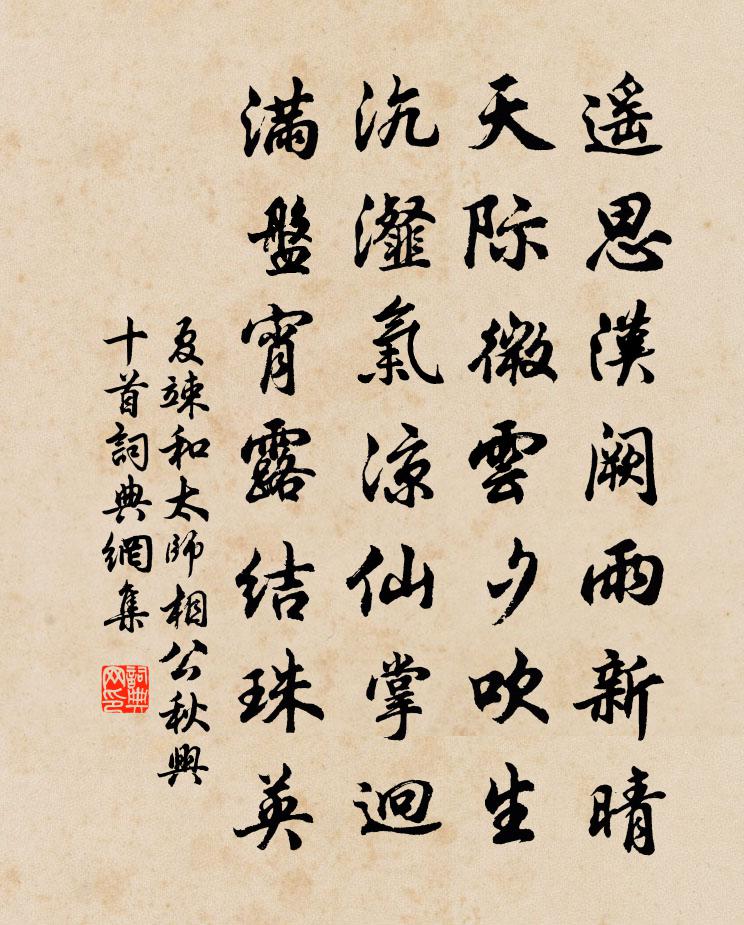 遥思漢阙雨新晴
天际微雲夕吹生
沆瀣氣凉仙掌迥
滿盤宵露结珠英
夏竦和太師相公秋興
十首詞典網集
詞典网印